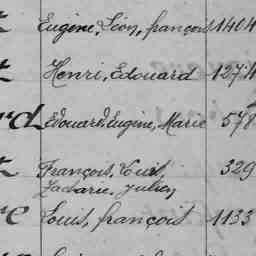 Eugène, Léon, françois 1404
Henri, Edouard 1274
Edouard, Eugène, Marie 578
François, Louis, 329
Zacharie, Julien
Louis, françois 1133